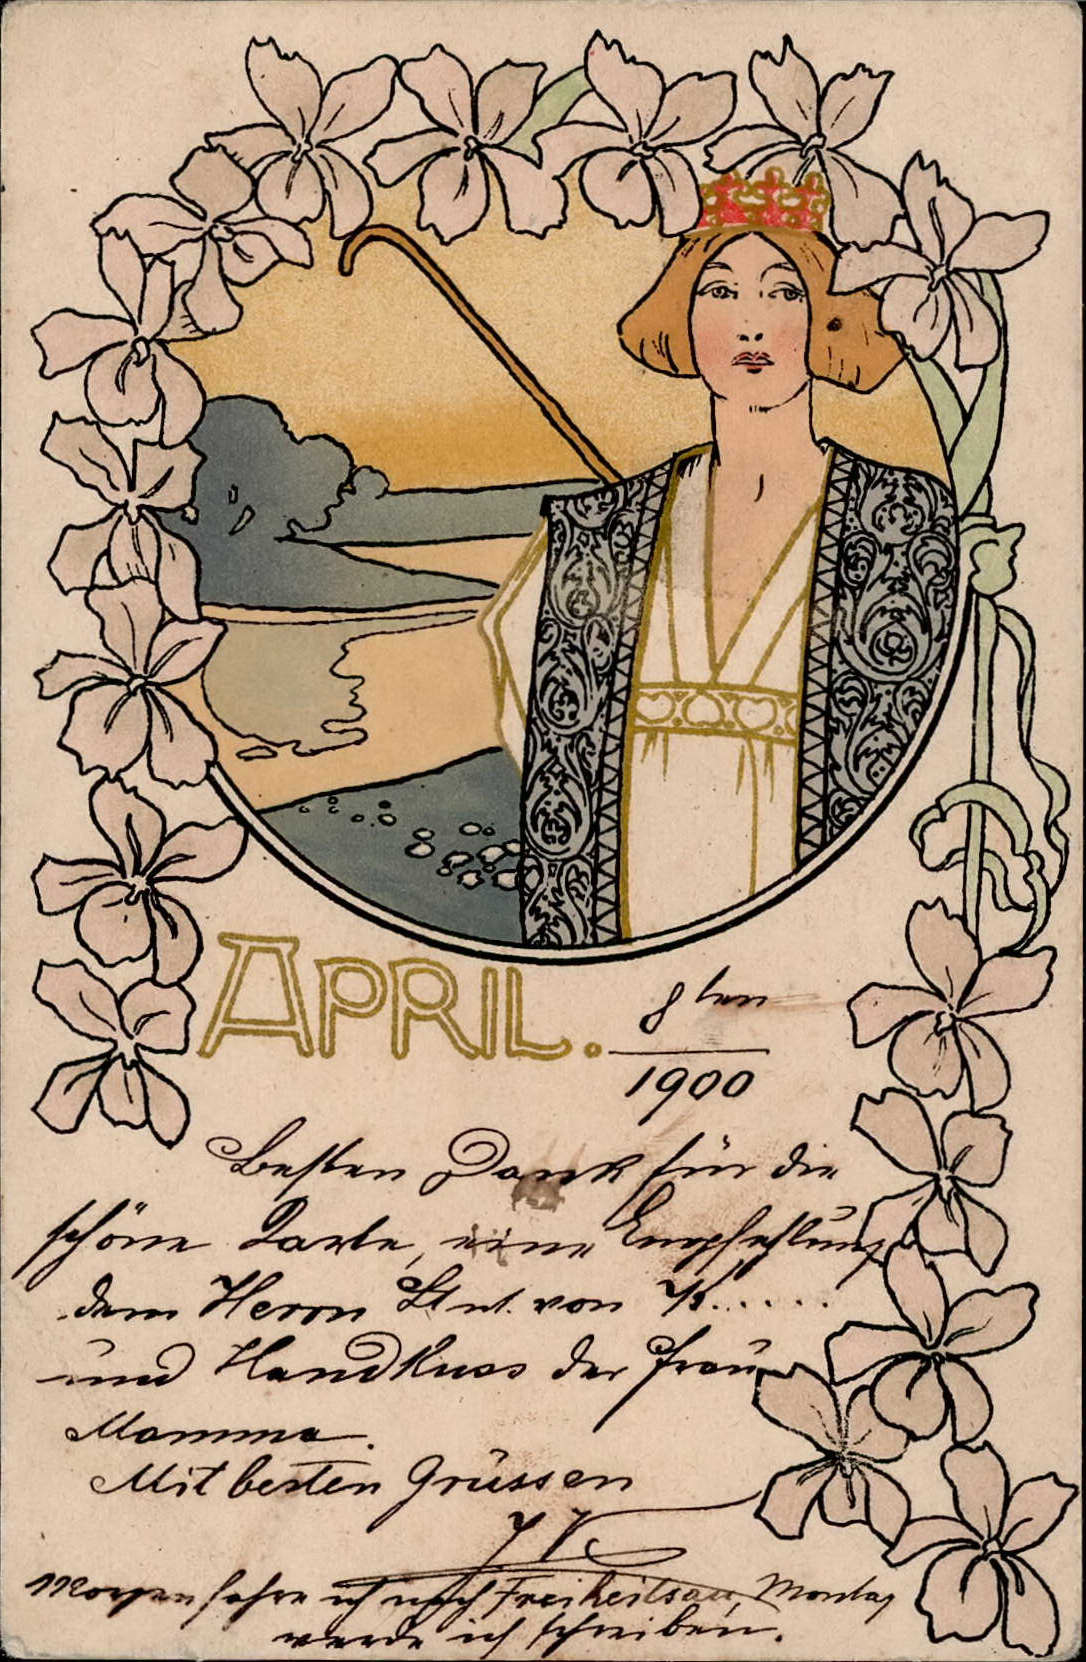 APRIL. 8ten
1900
Besten Dank für die
schöne Karte, eine Empfehlung
dem Herrn Ltnt. von K.....
und Handkuss der Frau
Mamma.
Mit besten Grüssen
Morgen fahre ich nach Freiheitsau, Montag
werde ich schreiben.